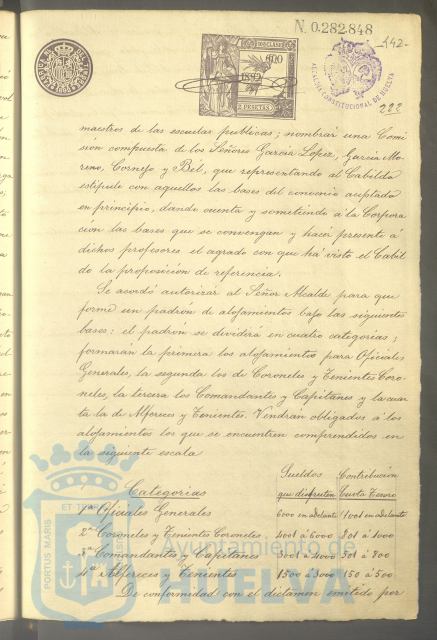 N. 0.282.848
142
222
10ª CLASE
1889
2 PESETAS
ALCALDIA CONSTITUCIONAL DE HUELVA
maestros de las escuelas publicas; nombrar una Comi
sión compuesta de los Señores García López, García Mo
reno, Cornejo y Bel, que representando al Cabildo
estipule con aquellos las bases del convenio aceptado
en principio, dando cuenta y sometiendo á la Corpora
cion las bases que se convengan y hacer presente á
dichos profesores el agrado con que ha visto el Cabil
do la proposición de referencia.
Se acordó autorizar al Señor Alcalde para que
forme un padrón de alojamientos bajo las siguientes
bases: el padrón se dividirá en cuatro categorias;
formarán la primera los alojamientos para Oficiales
Generales, la segunda los de Coroneles y Tenientes Coro-
neles, la tercera los Comandantes y Capitanes y la cuar
ta la de Alfereces y Tenientes. Vendrán obligados á los
alojamientos los que se encuentren comprendidos en
la siguiente escala
Categorias
Sueldos que disfruten
Contribución Cuota Tesoro
1ª Oficiales Generales 6000 en adelante 1001 en adelante
2ª Coroneles y Tenientes Coroneles 4001 á 6000 801 á 1000
3ª Comandantes y Capitanes 3001 á 4000 501 á 800
4ª Alfereces y Tenientes 1500 á 3000 150 á 500
De conformidad con el dictámen emitido por
PORTUS MARIS ET TERRAE
Ayuntamiento de
HUELVA